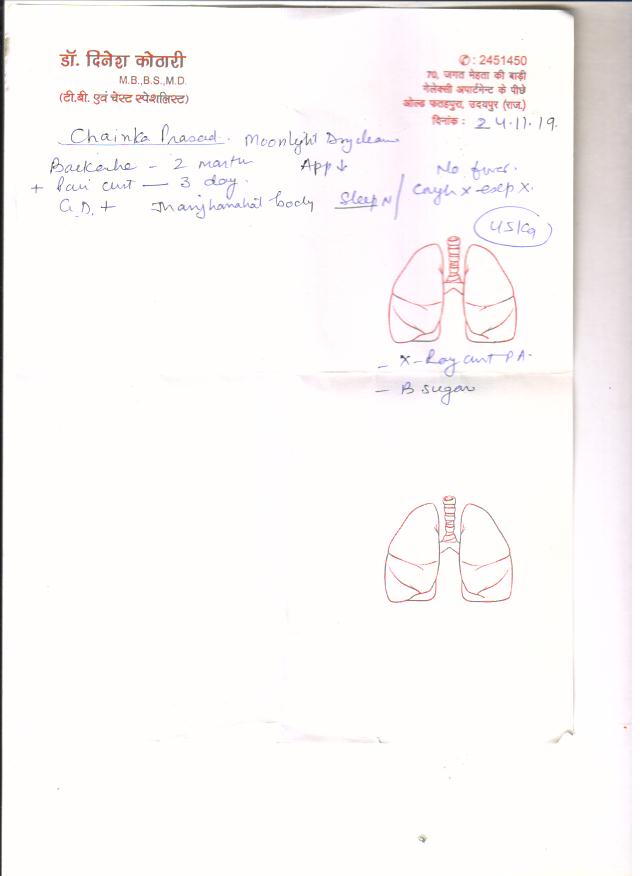 डॉ. दिनेश कोठारी
M.B.,B.S.,M.D.
(टी.बी. एवं चेस्ट स्पेशलिस्ट)
✆: 2451450
70, जगत मेहता की बाड़ी
गेलेक्सी अपार्टमेन्ट के पीछे
ओल्ड फतहपुरा, उदयपुर (राज.)
दिनांक : 24.11.19.
Prasad. Moonlight Dryclean
Backache - 2 month App ↓ No fever.
+ Pain — 3 day. Cough x
G.D. + body Sleep N
45kg
- X-Ray PA.
- B sugar